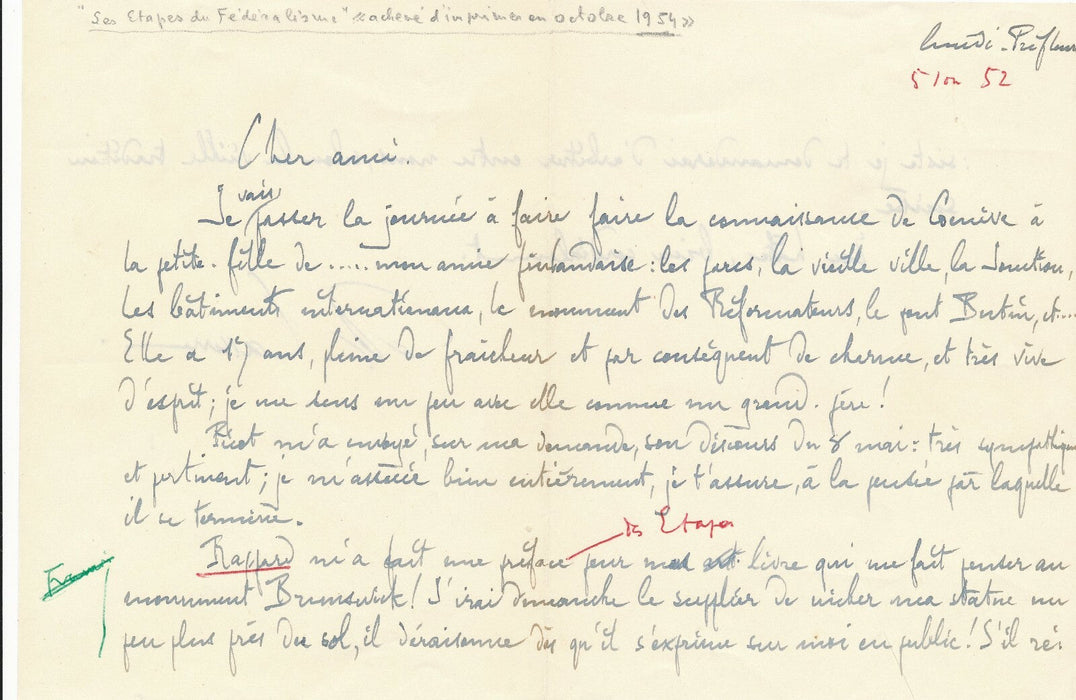 "Les Etapes du Fédéralisme" «achevé d'imprimer en octobre 1954»
lundi.
5 52
Cher ami.
Je vais passer la journée à faire faire la connaissance de Genève à
la petite-fille de ..... mon amie finlandaise : les parcs, la vieille ville, la Jonction,
les bâtiments internationaux, le monument des Réformateurs, le pont Butin, et....
Elle a 17 ans, pleine de fraîcheur et par conséquent de charme, et très vive
d'esprit ; je me sens un peu avec elle comme un grand-père !
Picot m'a envoyé, sur ma demande, son discours du 8 mai : très sympathique
et pertinent ; je m'associe bien entièrement, je t'assure, à la pensée par laquelle
il se termine.
des Etapes
Rappard m'a fait une préface pour livre qui me fait penser au
monument Brunswick ! J'irai dimanche le supplier de nicher ma statue un
peu plus près du sol, il déraisonne dès qu'il s'exprime sur moi en public ! S'il ré-